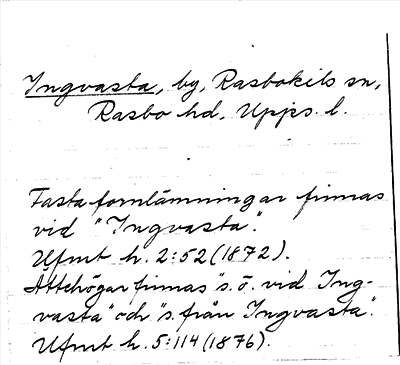 Ingvasta, by, Rasbokils sn,
Rasbo hd, Upps. l.
Fasta fornlämningar finnas
vid "Ingvasta".
Ufmt h. 2:52 (1872).
Ättehögar finnas "s.ö. vid Ing-
vasta" och "s. från Ingvasta".
Ufmt h. 5:114 (1876).